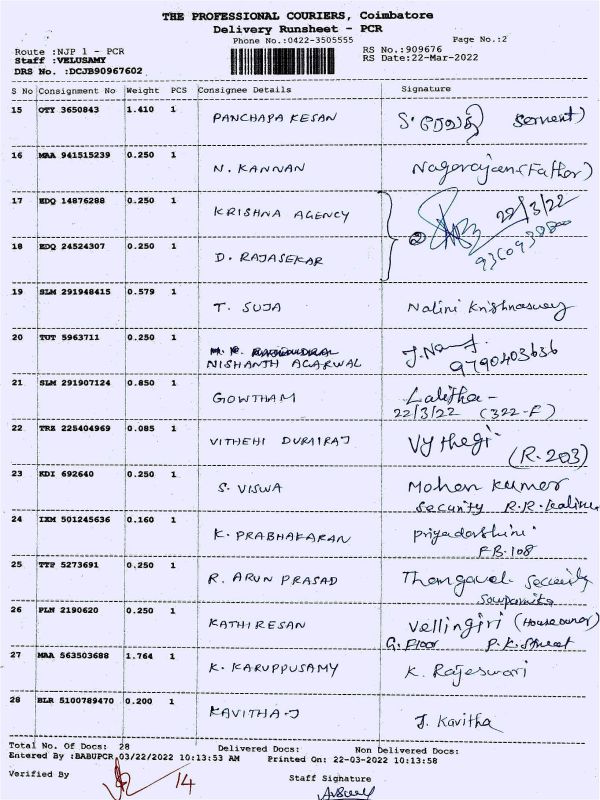 THE PROFESSIONAL COURIERS, Coimbatore
Delivery Runsheet - PCR
Phone No.:0422-3505555 Page No.:2
Route :NJP 1 - PCR RS No.:909676
Staff :VELUSAMY RS Date:22-Mar-2022
DRS No. :DCJB90967602
S No Consignment No Weight PCS Consignee Details Signature
15 OTY 3650843 1.410 1 PANCHAPA KESAN
16 MAA 941515239 0.250 1 N. KANNAN Nagarajan (Father)
17 EDQ 14876288 0.250 1 KRISHNA AGENCY 22/3/22
18 EDQ 24524307 0.250 1 D. RAJASEKAR
19 SLM 291948415 0.579 1 T. SUJA Nalini Krishnaswamy
20 TUT 5963711 0.250 1
NISHANTH AGARWAL 9790403636
21 SLM 291907124 0.850 1 GOWTHAM Lalitha -
22/3/22 (322-F)
22 TRZ 225404969 0.085 1 VITHEHI DURAIRAJ Vythegi
(R-203)
23 KDI 692640 0.250 1 S. VISWA Mohan Kumar
Security R.R.
24 IXM 501245636 0.160 1 K. PRABHAKARAN Priyadarshini
FB-108
25 TTP 5273691 0.250 1 R. ARUN PRASAD Thangavel Security
Sowparnika
26 PLN 2190620 0.250 1 KATHIRESAN Vellingiri (Houseowner)
G. Floor P.K. Street
27 MAA 563503688 1.764 1 K. KARUPPUSAMY K. Rajeswari
28 BLR 5100789470 0.200 1 KAVITHA-J J. Kavitha
Total No. Of Docs: 28 Delivered Docs: Non Delivered Docs:
Entered By :BABUPCR,03/22/2022 10:13:53 AM Printed On: 22-03-2022 10:13:58
Verified By 14 Staff Signature